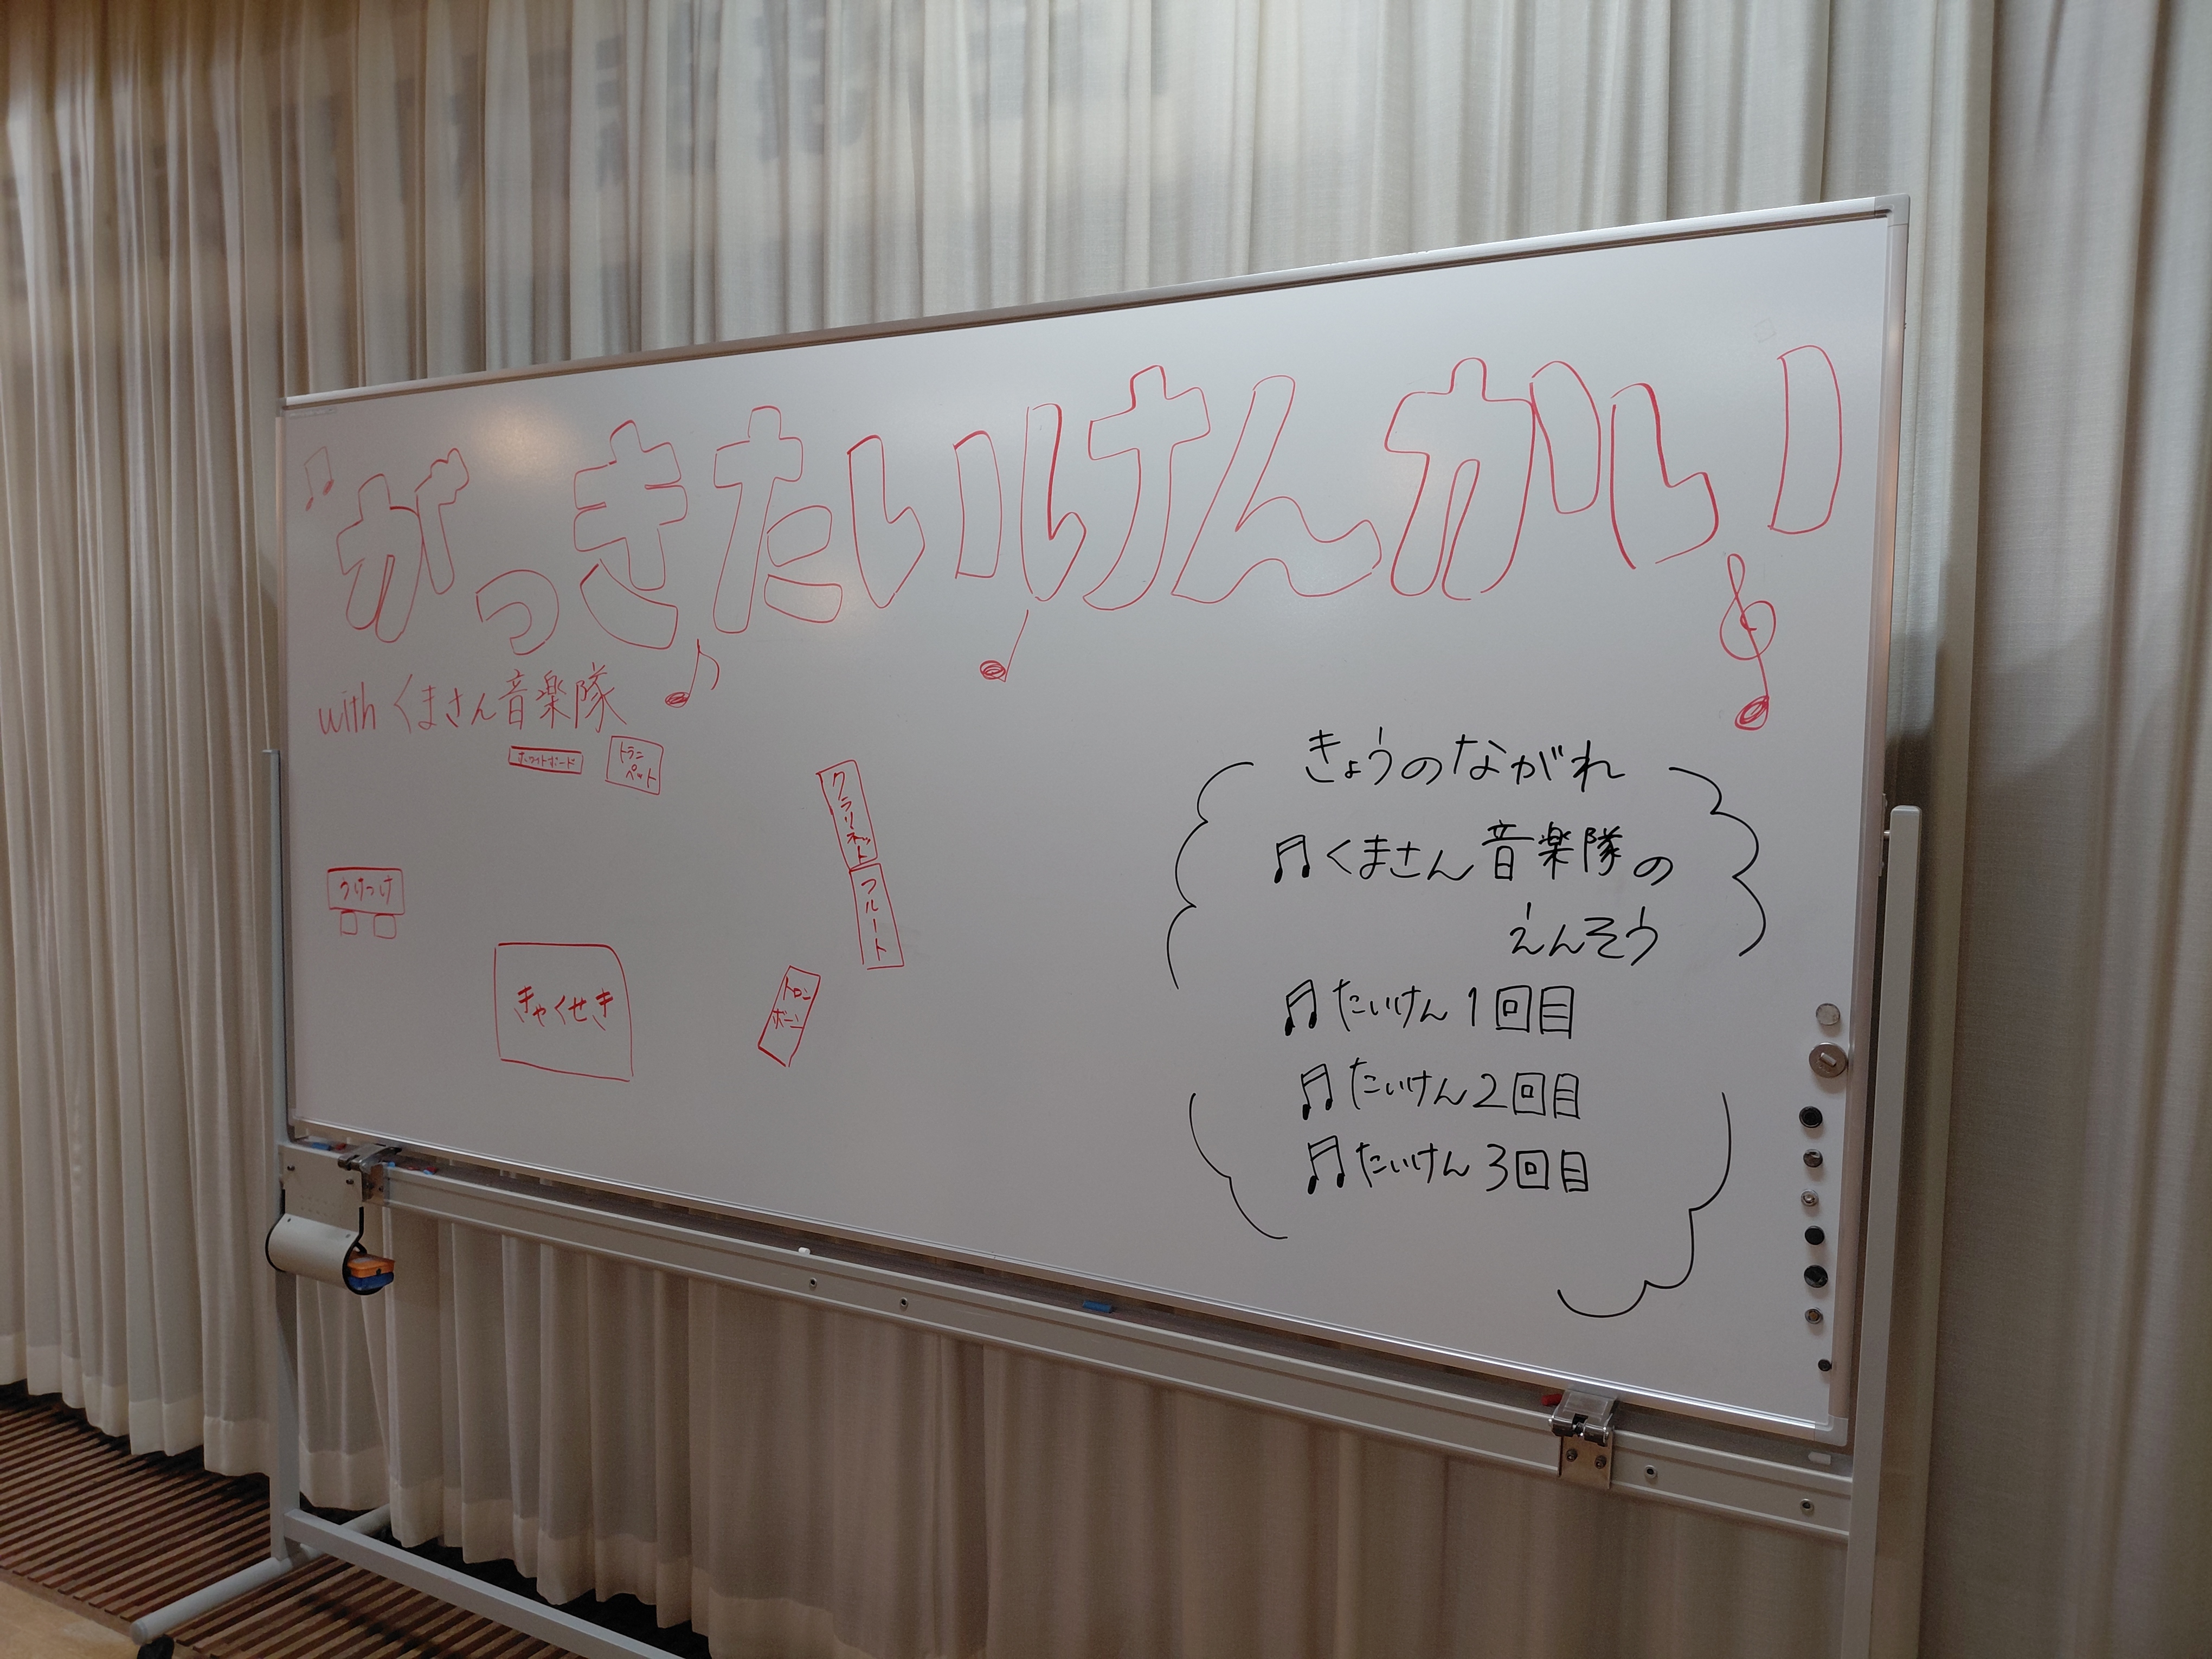 がっきたいけんかい
with くまさん音楽隊
ホワイトボード
トラン
ペット
クラリネット
フルート
うけつけ
きゃくせき
トロン
ボーン
きょうのながれ
♫くまさん音楽隊の
えんそう
♫たいけん1回目
♫たいけん2回目
♫たいけん3回目